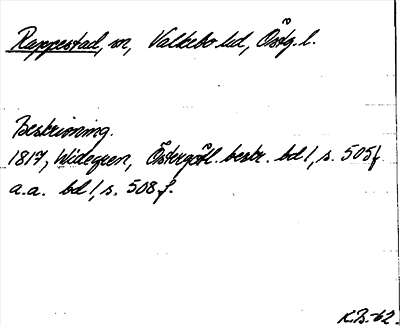 Rappestad, sn, Valkebo hd, Östg. l.
Beskrivning.
1817, Widegren, Östergötl. beskr. bd 1, s. 505 f.
a.a. bd 1, s. 508 f.
K.B.-62.